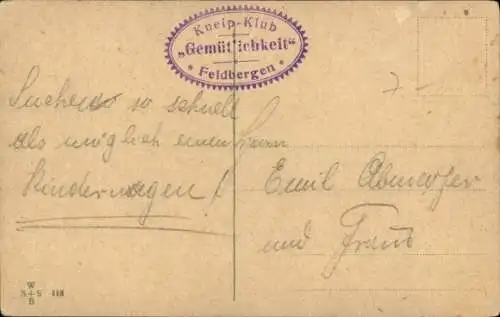 Kneip-Klub
„Gemütlichkeit“
* Feldbergen *
Suchen so schnell
als möglich einen
Kinderwagen!
Emil
und Frau
W
S+S 118
B